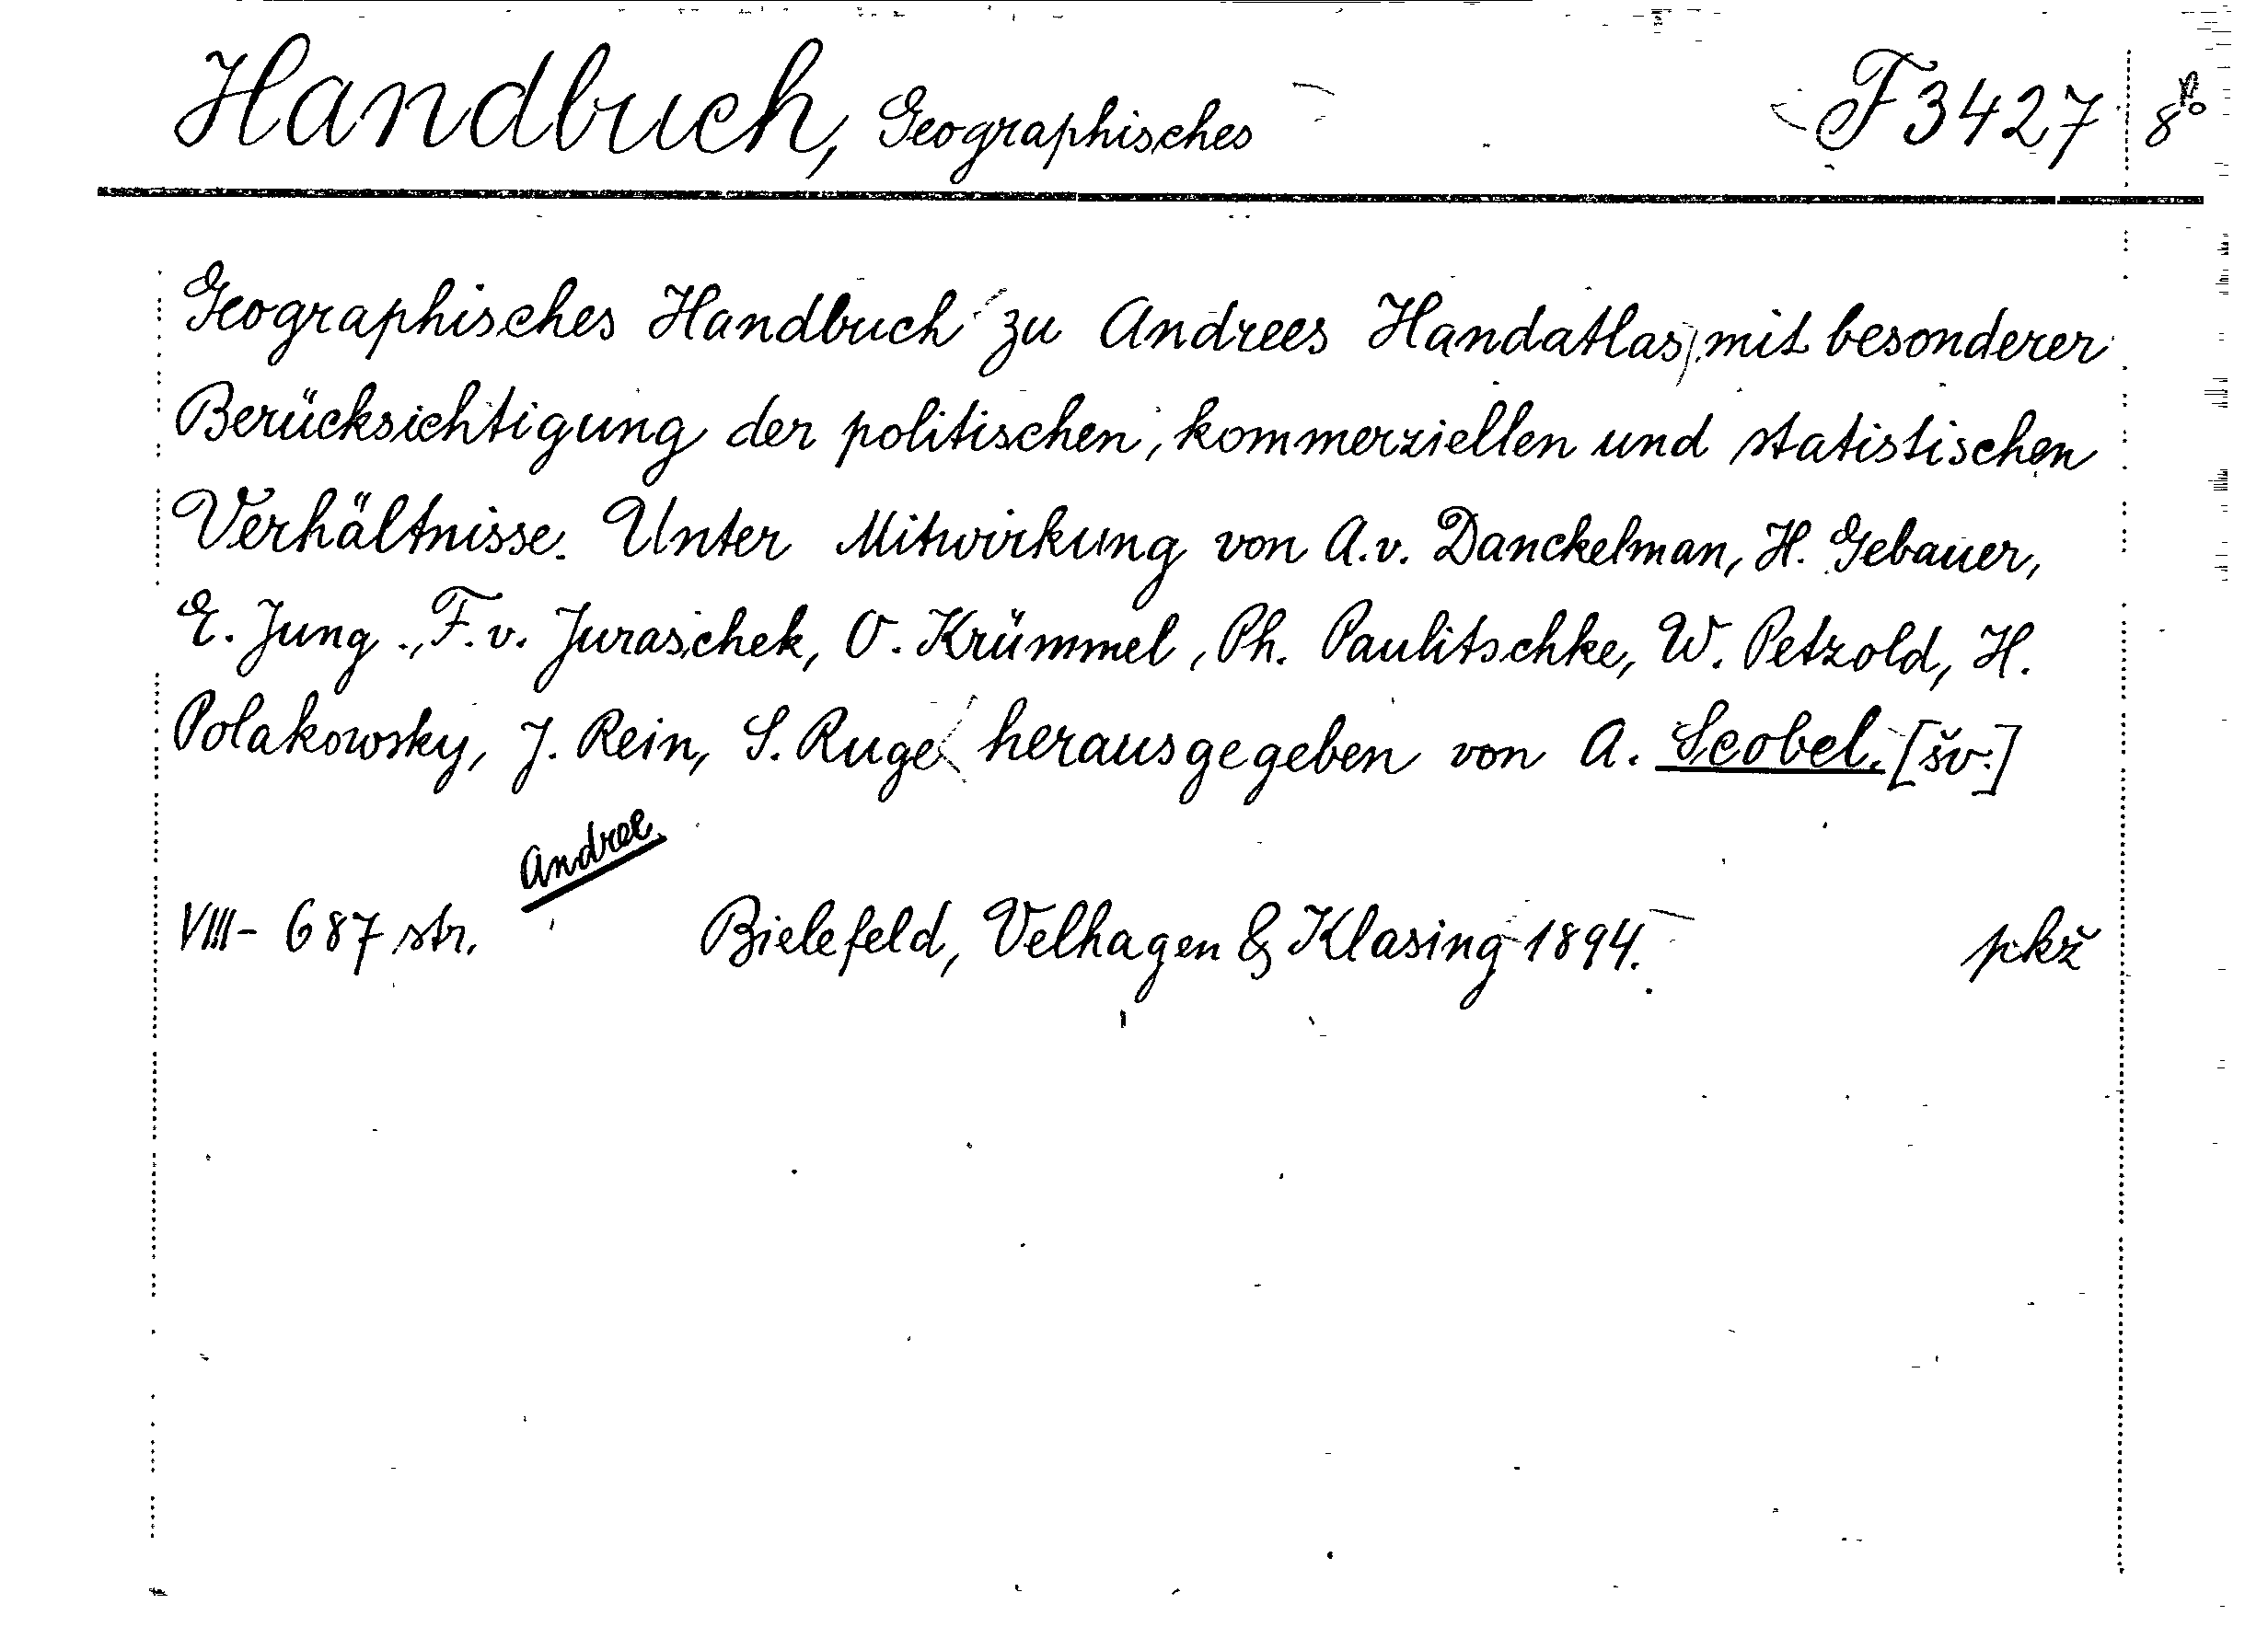 Handbuch, Geographisches F 3427 8°
Geographisches Handbuch zu Andrees Handatlas, mit besonderer
Berücksichtigung der politischen, kommerziellen und statistischen
Verhältnisse. Unter Mitwirkung von A. v. Danckelman, H. Gebauer,
E. Jung., F. v. Juraschek, O. Krümmel, Ph. Paulitschke, W. Petzold, H.
Polakowsky, J. Rein, S. Ruge herausgegeben von A. Scobel. [šv.]
Andree
VIII - 687 str. Bielefeld, Velhagen & Klasing 1894. pkž